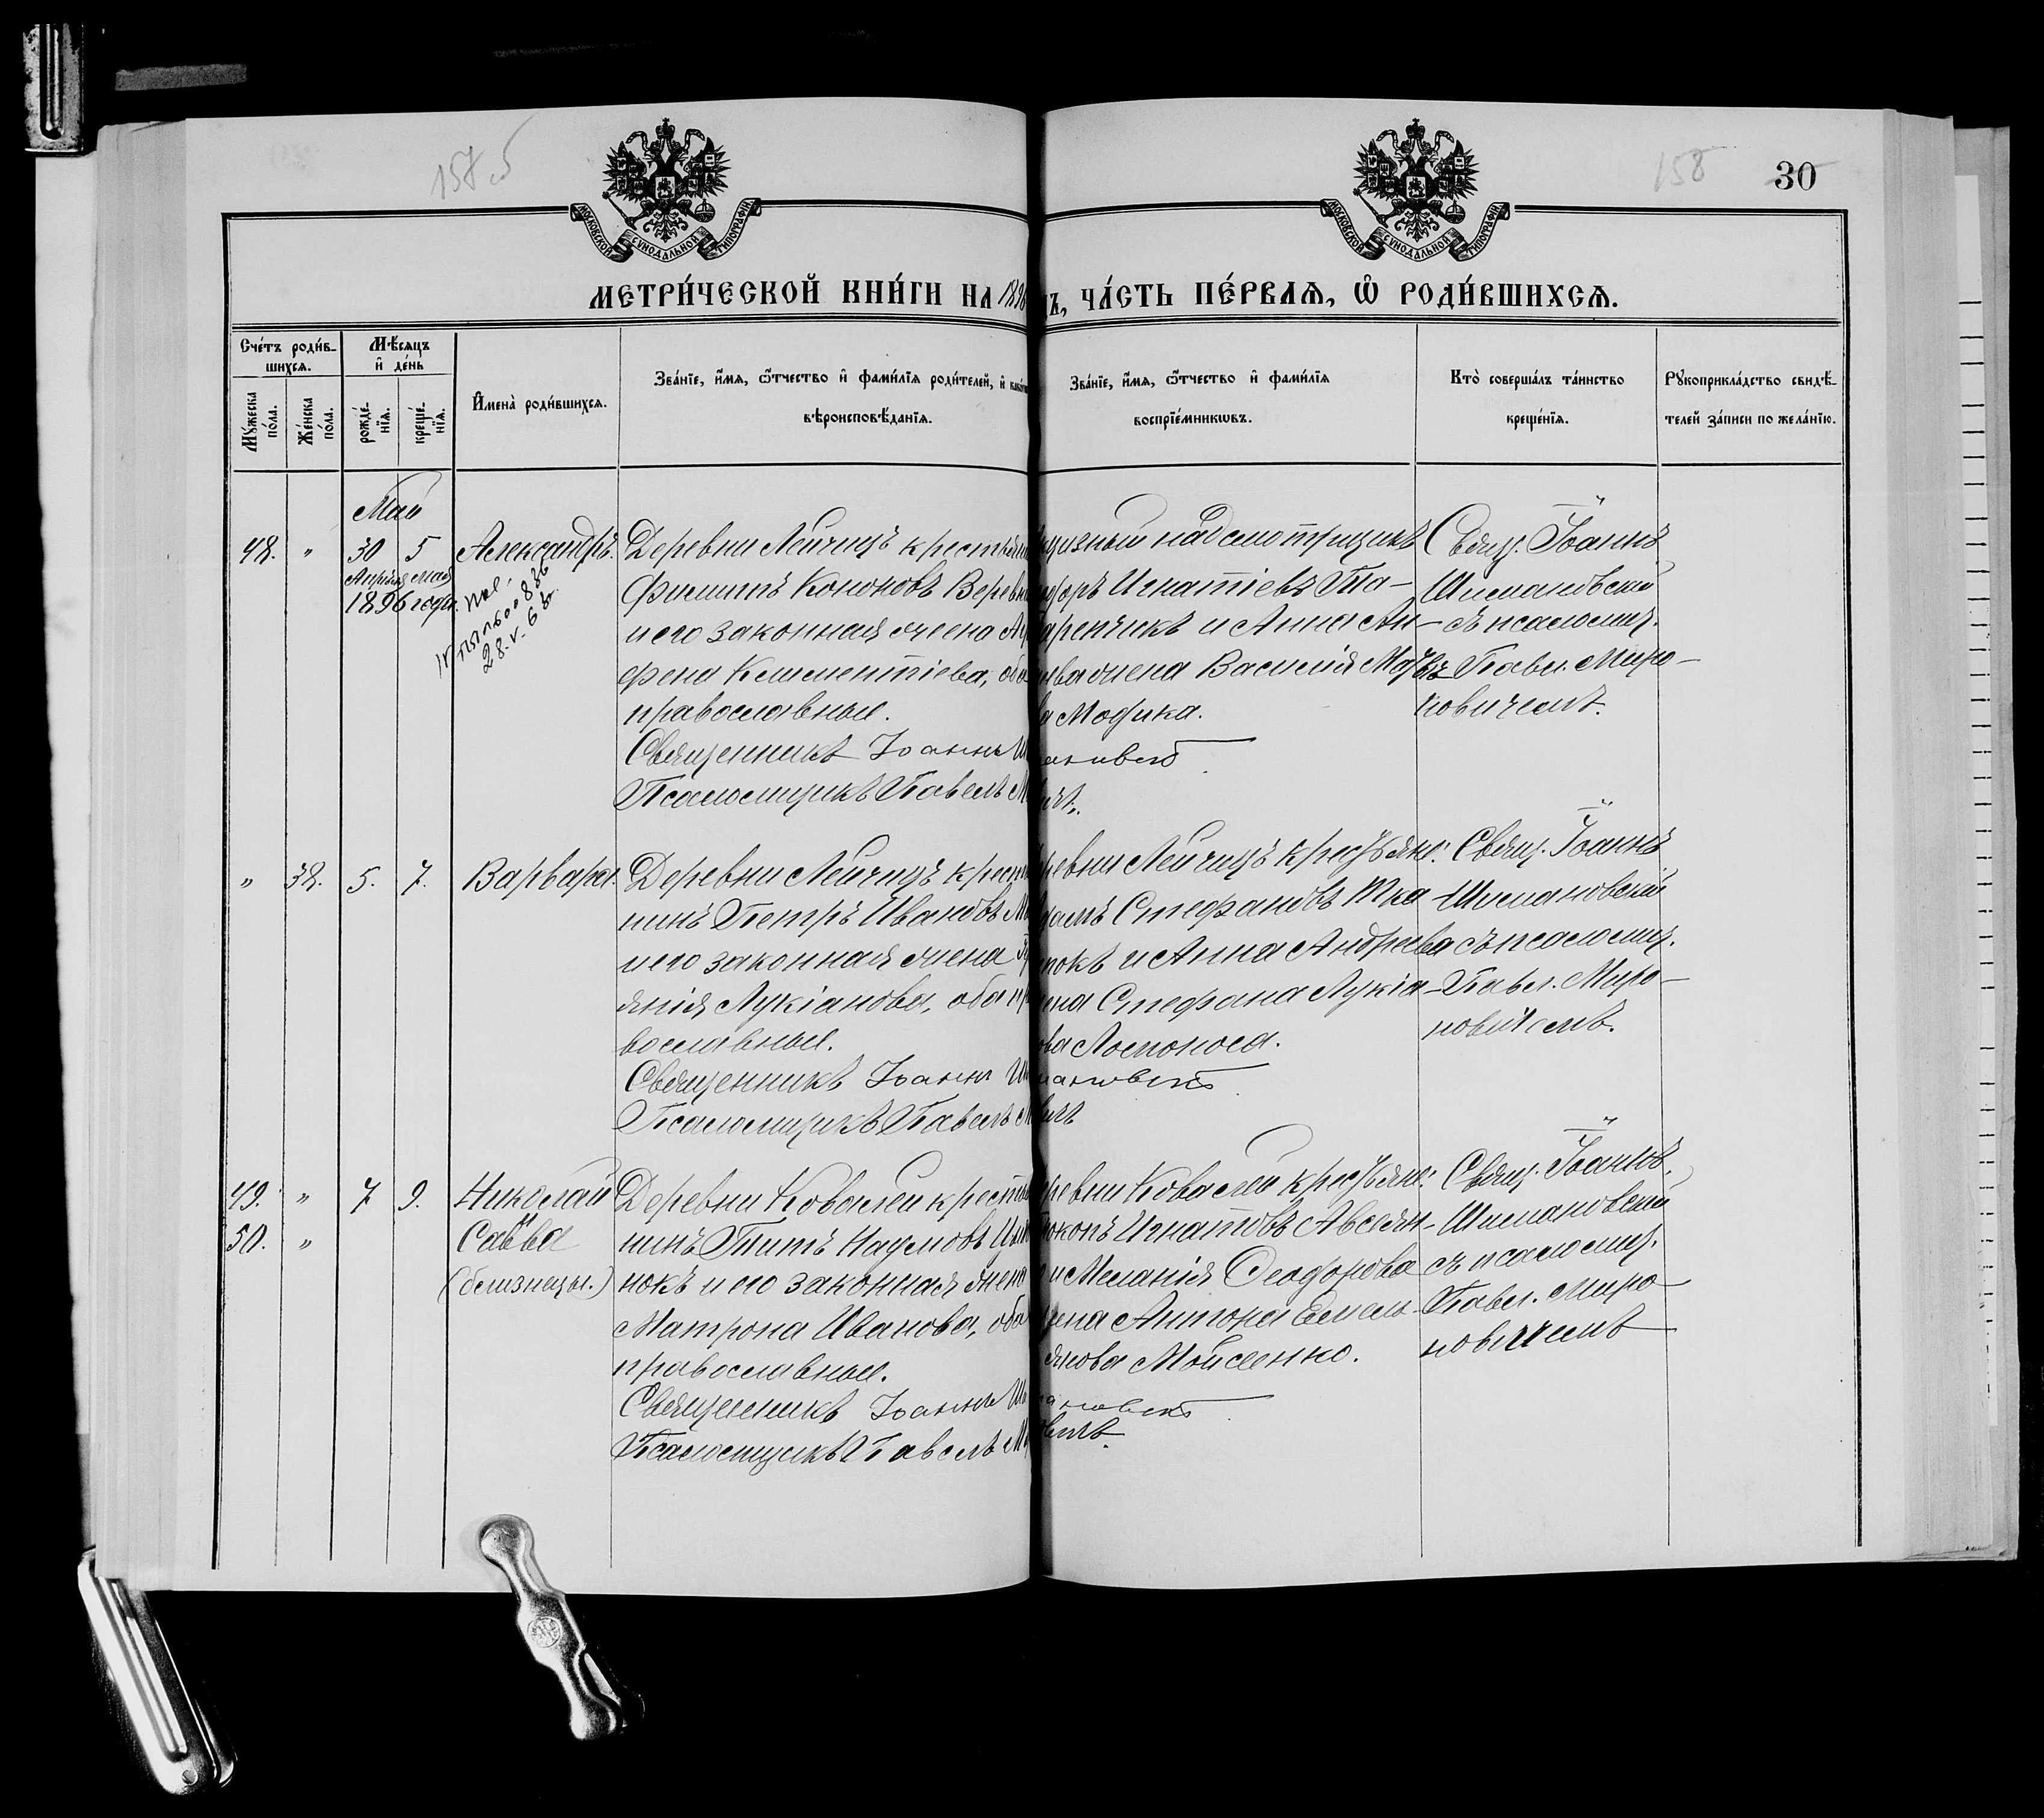 157 об
158
30
МОСКОВСКОЙ СѴНОДАЛЬНОЙ ТИПОГРАФІИ
МОСКОВСКОЙ СѴНОДАЛЬНОЙ ТИПОГРАФІИ
МЕТРИ́ЧЕСКОЙ КНИ́ГИ НА 1896
Ъ, ЧА́СТЬ ПЕ́РВАЯ, Ѡ҆ РОДИ́ВШИХСЯ.
Сче́тъ роди́в-
шихся.
Мѣ́сяцъ
и҆ де́нь
Мꙋ́жеска
по́ла.
Же́нска
по́ла.
рожде́-
нїя.
креще́-
нїя.
И҆мена̀ роди́вшихся.
Зва́нїе, и҆́мя, ѻ҆́тчество и҆ фами́лїя роди́телей, и҆
вѣроисповѣ́данїя.
Зва́нїе, и҆́мя, ѻ҆́тчество и҆ фами́лїя
воспрїе́мникѡвъ.
Кто̀ соверша́лъ та́инство
креще́нїя.
Рꙋкоприкла́дство свидѣ́-
телей за́писи по жела́нїю.
Май
48. " 30 5 Александръ.
Апрѣля Мая
1896 года.
28.V.68.
Деревни Лейчицъ крестьян
Филиппъ Кононовъ Верев
и его законная жена А
фена Климентіева, оба
православные.
Священникъ Іоаннъ Ш
Псаломщикъ Павелъ М
цизный надсмотрщикъ
доръ Игнатіевъ Та-
аренчикъ и Анна Ан-
ва жена Василія Ма
а Модика.
ановскій
ичъ.
Свящ. Іоаннъ
Шимановскій
съ псаломщ.
Павл. Миро-
новичемъ.
" 38. 5. 7. Варвара.
Деревни Лейчицъ крест
нинъ Петръ Ивановъ М
и его законная жена
янія Лукіанова, оба пр
вославные.
Священникъ Іоаннъ Ши
Псаломщикъ Павелъ М
ревни Лейчицъ крестьяне:
дамъ Стефановъ Тка-
нокъ и Анна Андреева
ена Стефана Лукіа-
ова Ломоноса.
мановскій
вичъ
Свящ. Іоаннъ
Шимановскій
съ псаломщ.
Павл. Миро-
новичемъ.
49. " 7 9. Николай
и
50. " Савва
(близнецы.)
Деревни Ковалей кресть
нинъ Титъ Наумовъ Цы
нокъ и его законная жена
Матрона Иванова, оба
православные.
Священникъ Іоаннъ Ши
Псаломщикъ Павелъ Ми
ревни Ковалей крестьяне:
кокъ Игнатовъ Авсеян-
и Меланія Ѳеодорова
жена Антона Емель-
янова Мойсеенко.
ановскій
вичъ.
Свящ. Іоаннъ
Шимановскій
съ псаломщ.
Павл. Миро-
новичемъ